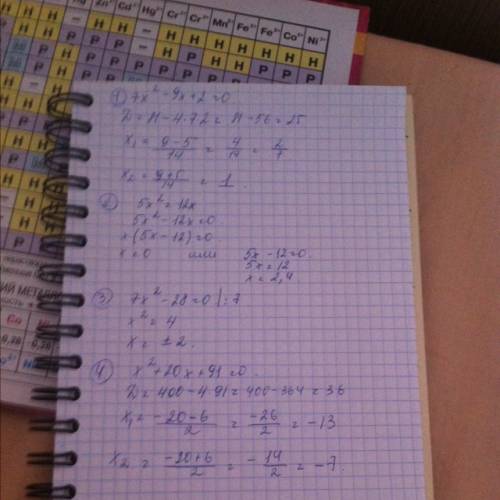 Zn²⁺ Cd²⁺ Hg²⁺ Cr²⁺ Cr³⁺ Mn²⁺ Fe²⁺ Fe³⁺ Co²⁺ Ni²⁺
1) 7x² - 9x + 2 = 0
D = 81 - 4·7·2 = 81 - 56 = 25
x₁ = (9-5)/14 = 4/14 = 2/7
x₂ = (9+5)/14 = 1.
2) 5x² = 12x
5x² - 12x = 0
x(5x - 12) = 0.
x = 0 или 5x - 12 = 0.
5x = 12
x = 2,4
3) 7x² - 28 = 0 |:7
x² = 4
x = ±2.
4) x² + 20x + 91 = 0.
D = 400 - 4·91 = 400 - 364 = 36
x₁ = (-20-6)/2 = -26/2 = -13
x₂ = (-20+6)/2 = -14/2 = -7.